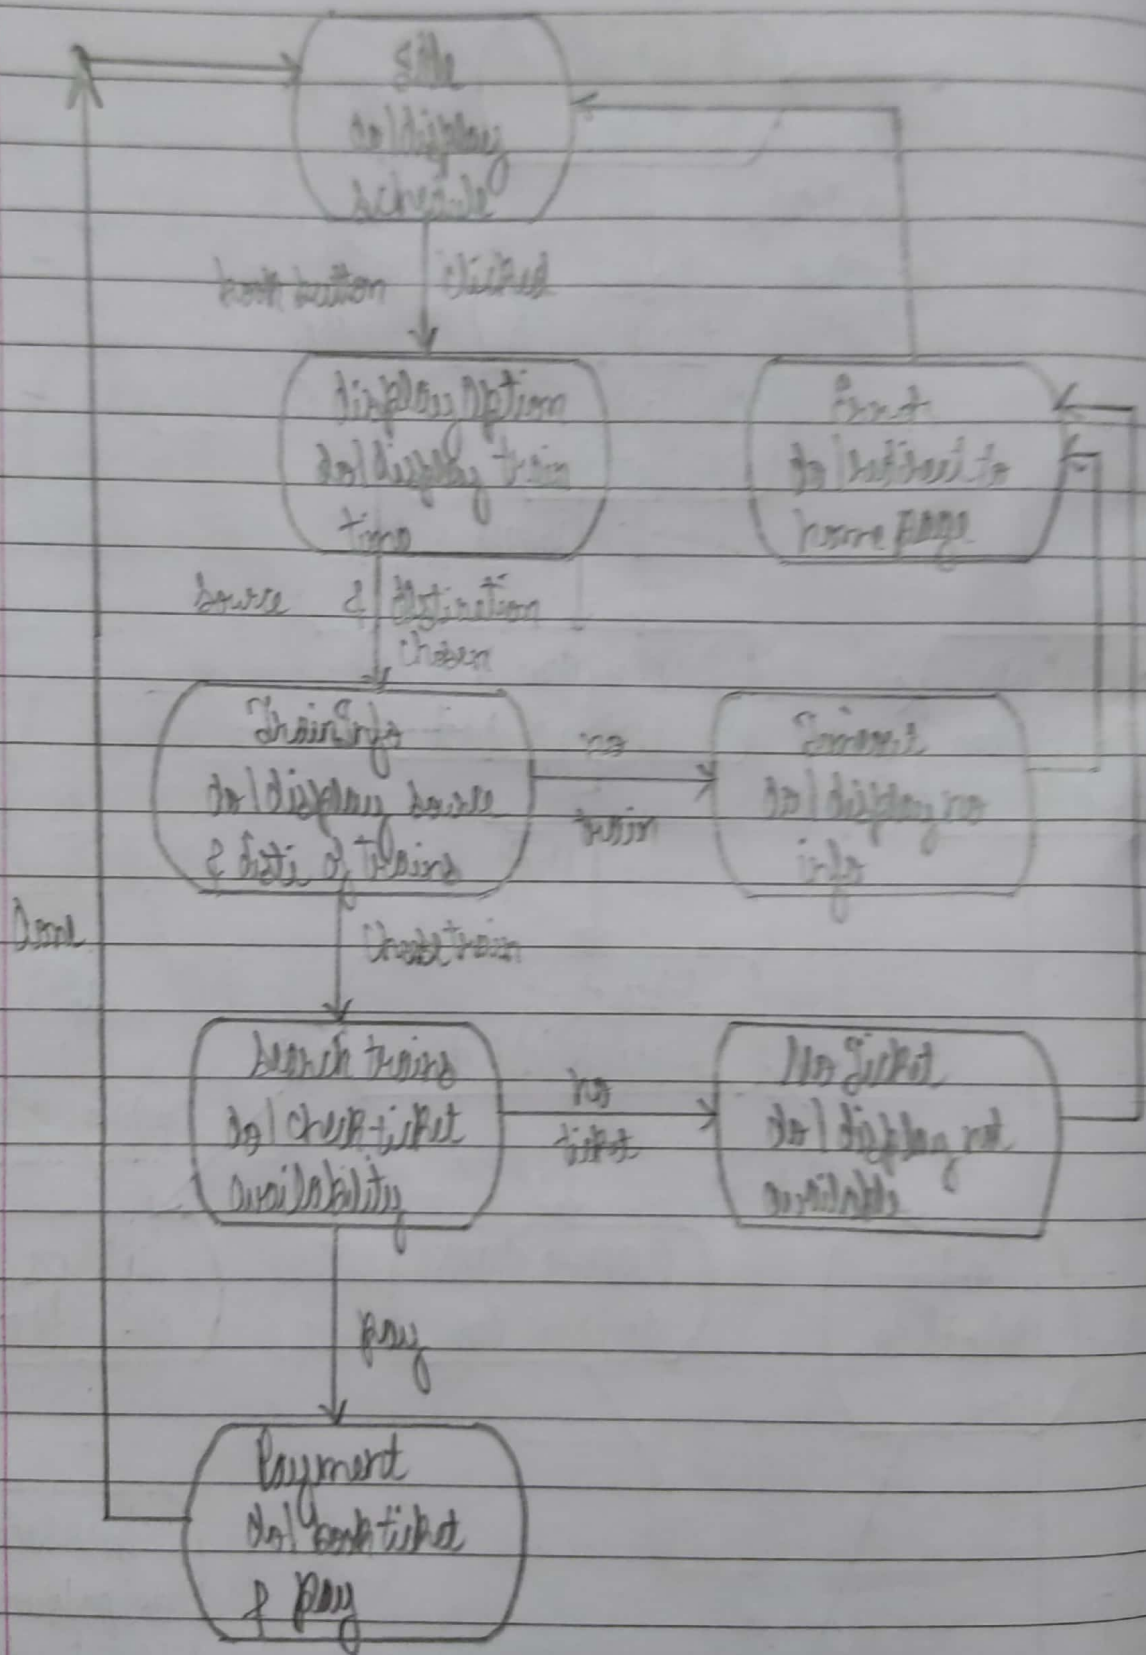 do/display
schedule
book button clicked
display option
do/display train
time
do/redirect to
home page
source & destination
chosen
TrainInfo
do/display source
& dsti of trains
no
train
do/display no
info
Done
Choose train
Search trains
do/check ticket
availability
no
ticket
No Ticket
do/display not
available
pay
Payment
do/book ticket
& pay